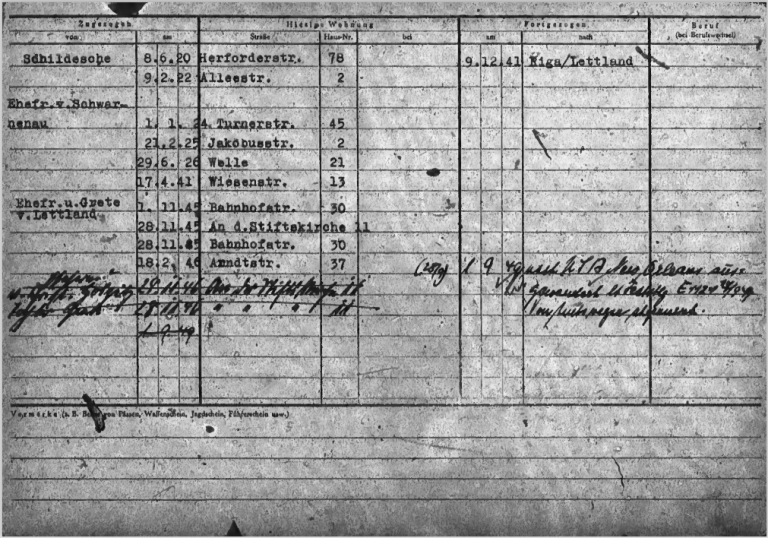 Zugezogen Hiesige Wohnung Fortgezogen Beruf
von am Straße Haus-Nr. bei am nach (bei Berufswechsel)
Schildesche 8.6.20 Herforderstr. 78 9.12.41 Riga/Lettland
9.2.22 Alleestr. 2
Ehefr.v.Schwar-
nenau 1. 1. 24 Turnerstr. 45
21.2.25 Jakobusstr. 2
29.6. 26 Welle 21
17.4.41 Wiesenstr. 13
Ehefr.u.Grete
v.Lettland 1. 11.45 Bahnhofstr. 30
28.11.45 An d.Stiftskirche 11
28.11.45 Bahnhofstr. 30
18.2. 46 Arndtstr. 37 1 9 49 nach USA New Orleans aus-
29.11.46 An der Stiftskirche 11 gewandert
28.11.46 " " " 11
1. 9. 49
Vermerke (z. B. Besitz von Pässen, Waffenschein, Jagdschein, Führerschein usw.)